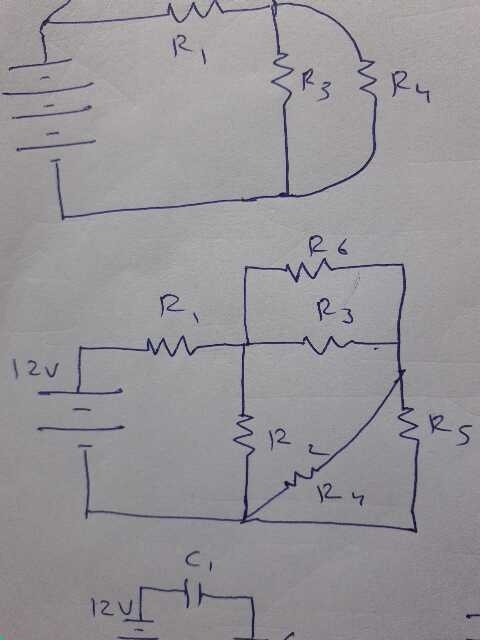 R1
R3
R4
R6
R1
R3
12V
R2
R4
R5
C1
12V